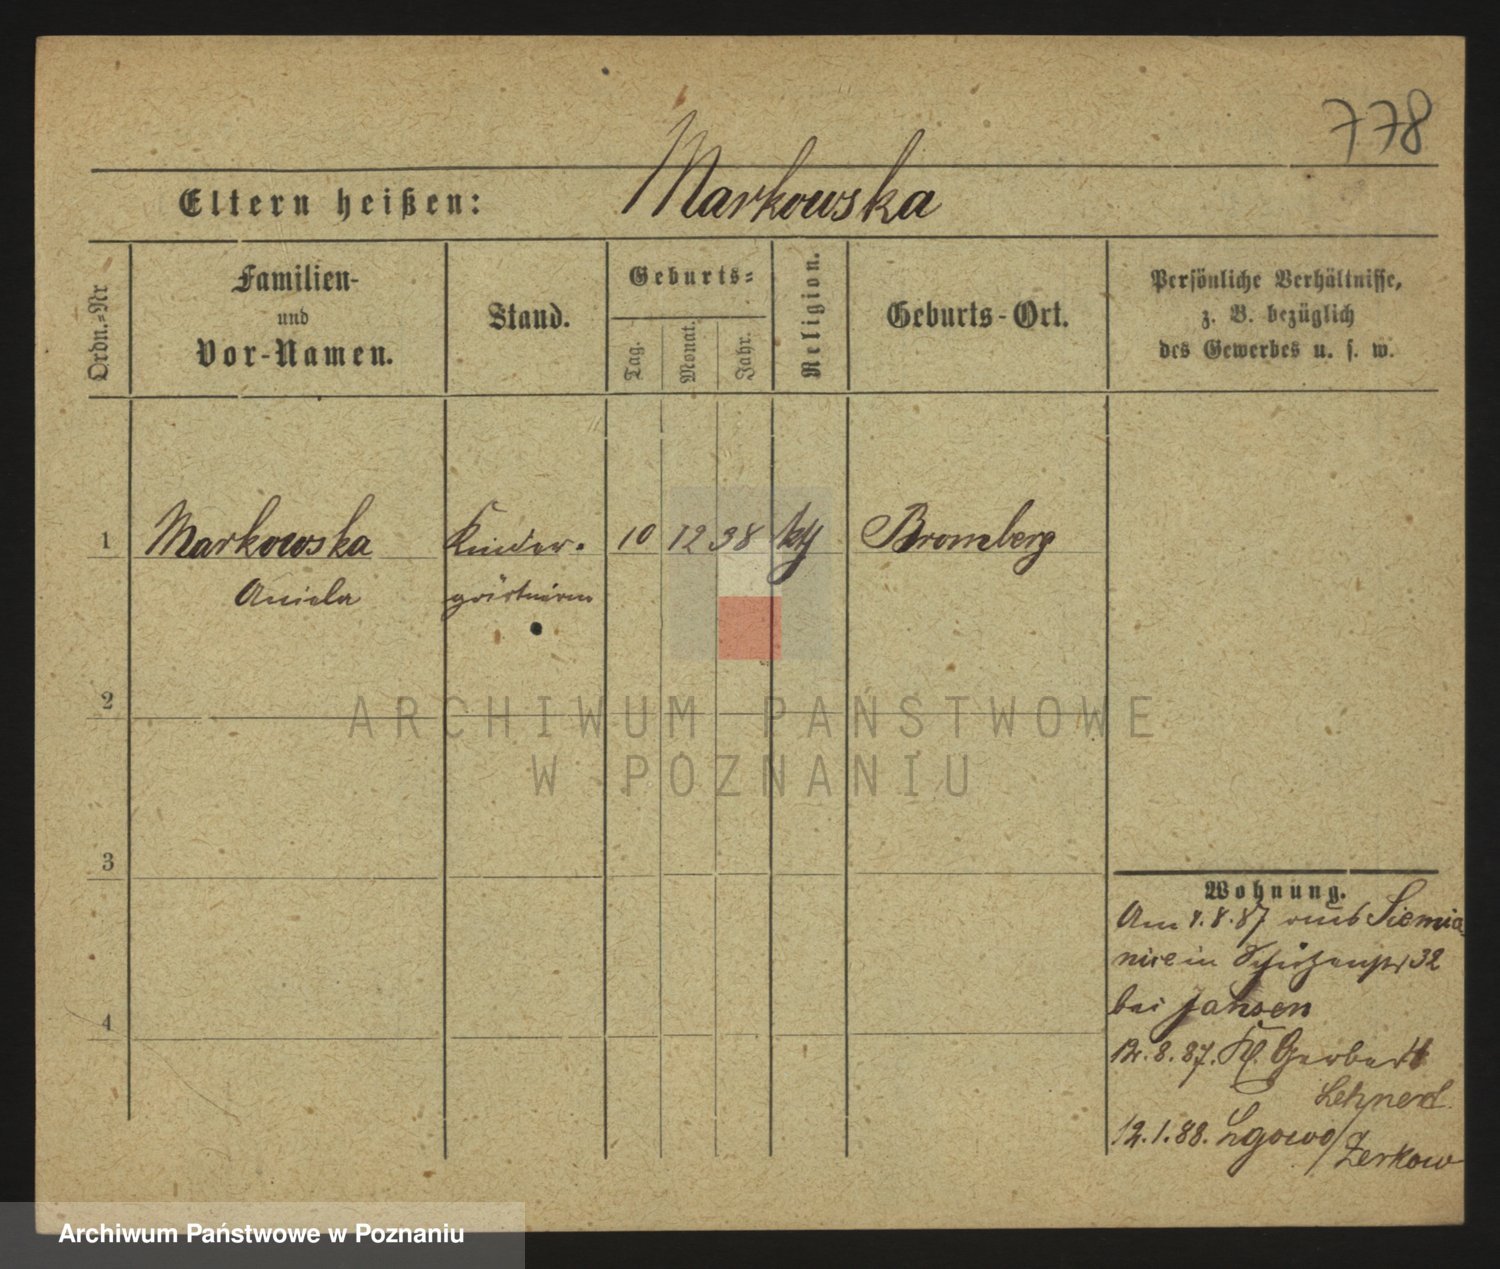 778
Eltern heißen: Markowska
Ordn.-Nr
Familien-
und
Vor-Namen.
Stand.
Geburts-
Tag.
Monat.
Jahr.
Religion.
Geburts-Ort.
Persönliche Verhältnisse,
z. B. bezüglich
des Gewerbes u. s. w.
1 Markowska Kinder- 10 12 38 kth Bromberg
Aniela gärtnerin
2
ARCHIWUM PAŃSTWOWE
W POZNANIU
3
Wohnung.
Am 4.8.87 aus Siemia
nice in Schützenstr 32
bei Jansen
4
12.8.87. Kl. Gerberst
Lehnerd.
12.1.88. Lgowo/
Zerkow
Archiwum Państwowe w Poznaniu